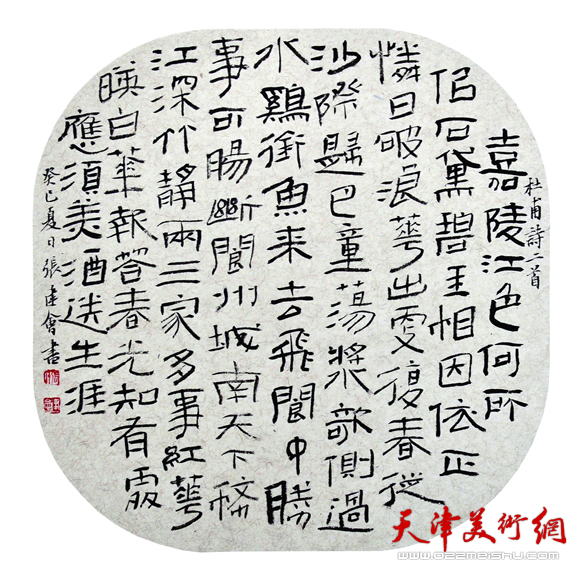 杜甫詩二首
嘉陵江色何所
佀石黛碧玉相因依正
憐日破浪華出更復春從
沙際歸巴童蕩槳欹側過
水鷄銜魚來去飛閬中勝
事可腸斷閬州城南天下稀
江深竹靜兩三家多事紅華
暎白華報答春光知有處
應須美酒送生涯
癸巳夏日張建會書
天津美術網
www.022meishu.com